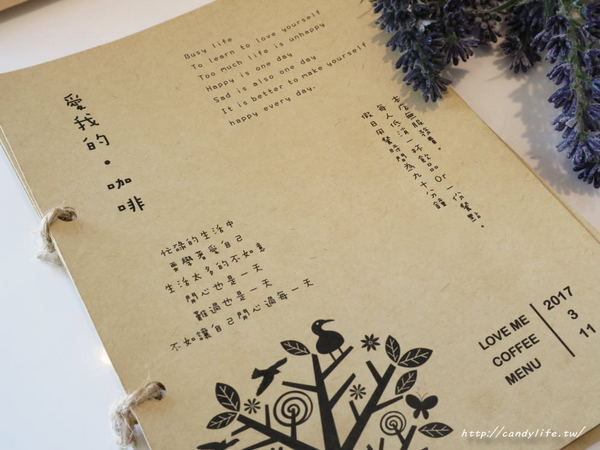 Busy life
To learn to love yourself
Too much life is unhappy
Happy is one day
Sad is also one day
It is better to make yourself
happy every day.
愛我的・咖啡
本店無服務費。
每人低消一杯飲品 or 一份餐點。
假日用餐時間為九十分鐘
忙碌的生活中
要學著愛自己
生活太多的不如意
開心也是一天
難過也是一天
不如讓自己開心過每一天
LOVE ME
COFFEE
MENU
2017
3
11
http://candylife.tw/